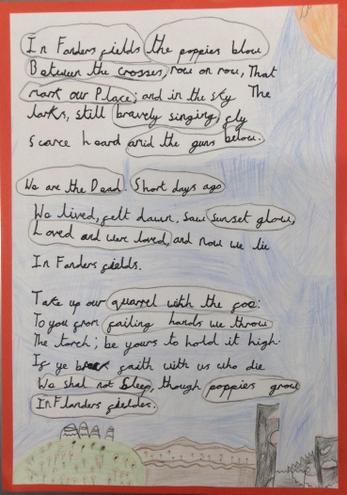 In Fanders fields the poppies blow
Between the crosses, row on row, That
mark our Place; and in the sky The
larks, still bravely singing, fly
Scarce heard amid the guns below.
We are the Dead Short days ago
We lived, felt dawn, saw sunset glow,
Loved and were loved, and now we lie
In Fanders fields.
Take up our quarrel with the foe:
To you from failing hands we throw
The torch; be yours to hold it high.
If ye break faith with us who die
We shal not Sleep, though poppies grow
In Flanders fieldes.